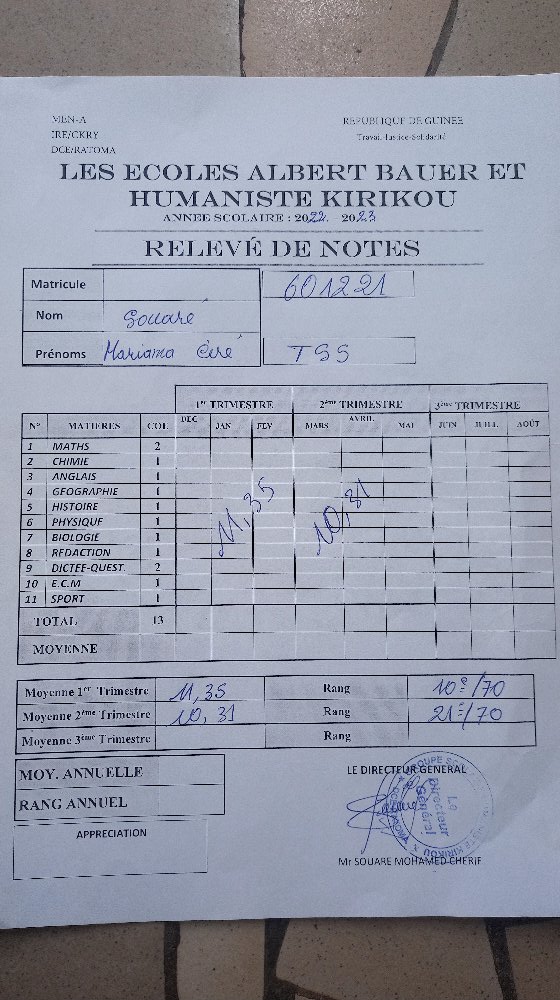 MEN-A
REPUBLIQUE DE GUINEE
IRE/CKRY
Travail-Justice-Solidarité
DCE/RATOMA
LES ECOLES ALBERT BAUER ET
HUMANISTE KIRIKOU
ANNEE SCOLAIRE : 2022 - 2023
RELEVÉ DE NOTES
Matricule 601221
Nom Souaré
Prénoms Mariama Ciré TSS
1er TRIMESTRE 2ème TRIMESTRE 3ème TRIMESTRE
N° MATIERES COE DEC JAN FEV MARS AVRIL MAI JUIN JUILL AOÛT
1 MATHS 2
2 CHIMIE 1
3 ANGLAIS 1
4 GEOGRAPHIE 1
5 HISTOIRE 1
6 PHYSIQUE 1
7 BIOLOGIE 1
8 REDACTION 1
9 DICTEE-QUEST. 2
10 E.C.M 1
11 SPORT 1
11,35 10,31
TOTAL 13
MOYENNE
Moyenne 1er Trimestre 11,35 Rang 10e/70
Moyenne 2ème Trimestre 10,31 Rang 21e/70
Moyenne 3ème Trimestre Rang
MOY. ANNUELLE
RANG ANNUEL
APPRECIATION
LE DIRECTEUR GENERAL
Le
Directeur
Général
Mr SOUARE MOHAMED CHERIF